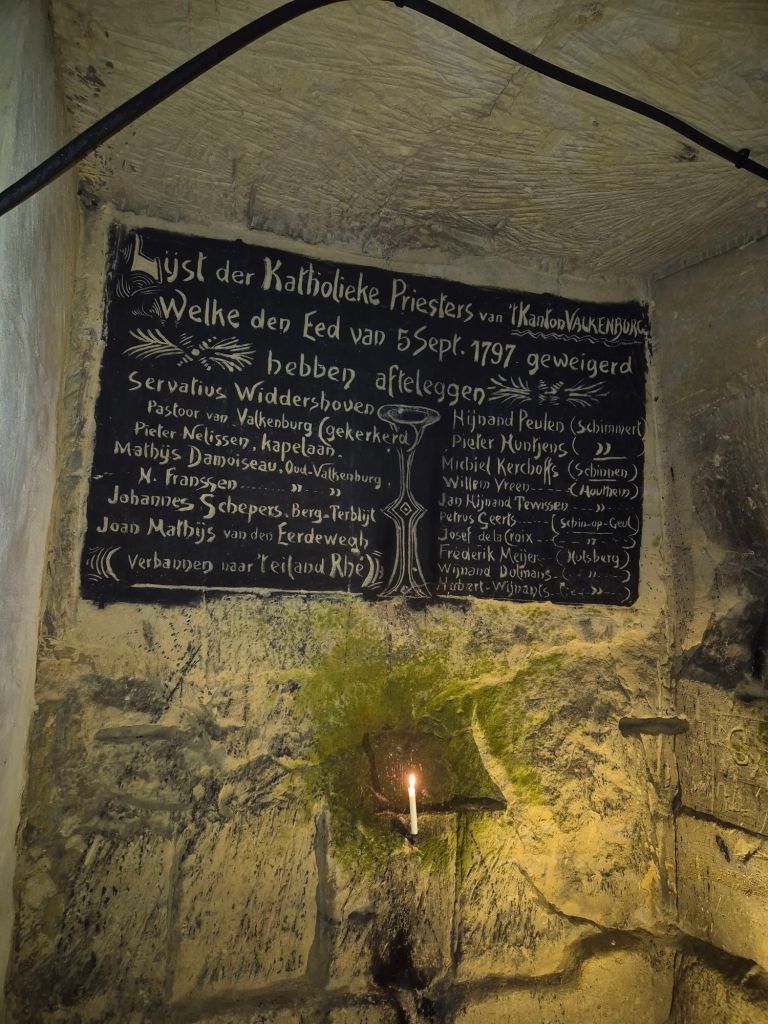 Lijst der Katholieke Priesters van 't Kanton VALKENBURG
Welke den Eed van 5 Sept. 1797 geweigerd
hebben afteleggen
Servatius Widdershoven
Pastoor van Valkenburg (gekerkerd)
Pieter Nelissen, kapelaan.
Mathijs Damoiseau, Oud-Valkenburg
N. Franssen „ „
Johannes Schepers. Berg-Terblijt
Joan Mathijs van den Eerdewegh
(Verbannen naar 't eiland Rhé)
Hijnand Peulen (Schimmert)
Pieter Huntjens ( „ )
Michiel Kerchoffs (Schinnen)
Willem Vreen (Houthem)
Jan Hijnand Tewissen „
Petrus Geerts (Schin-op-Geul)
Josef de la Croix „
Frederik Meijer (Hulsberg)
Wijnand Dolmans ( „ )
Hubert Wijnants „